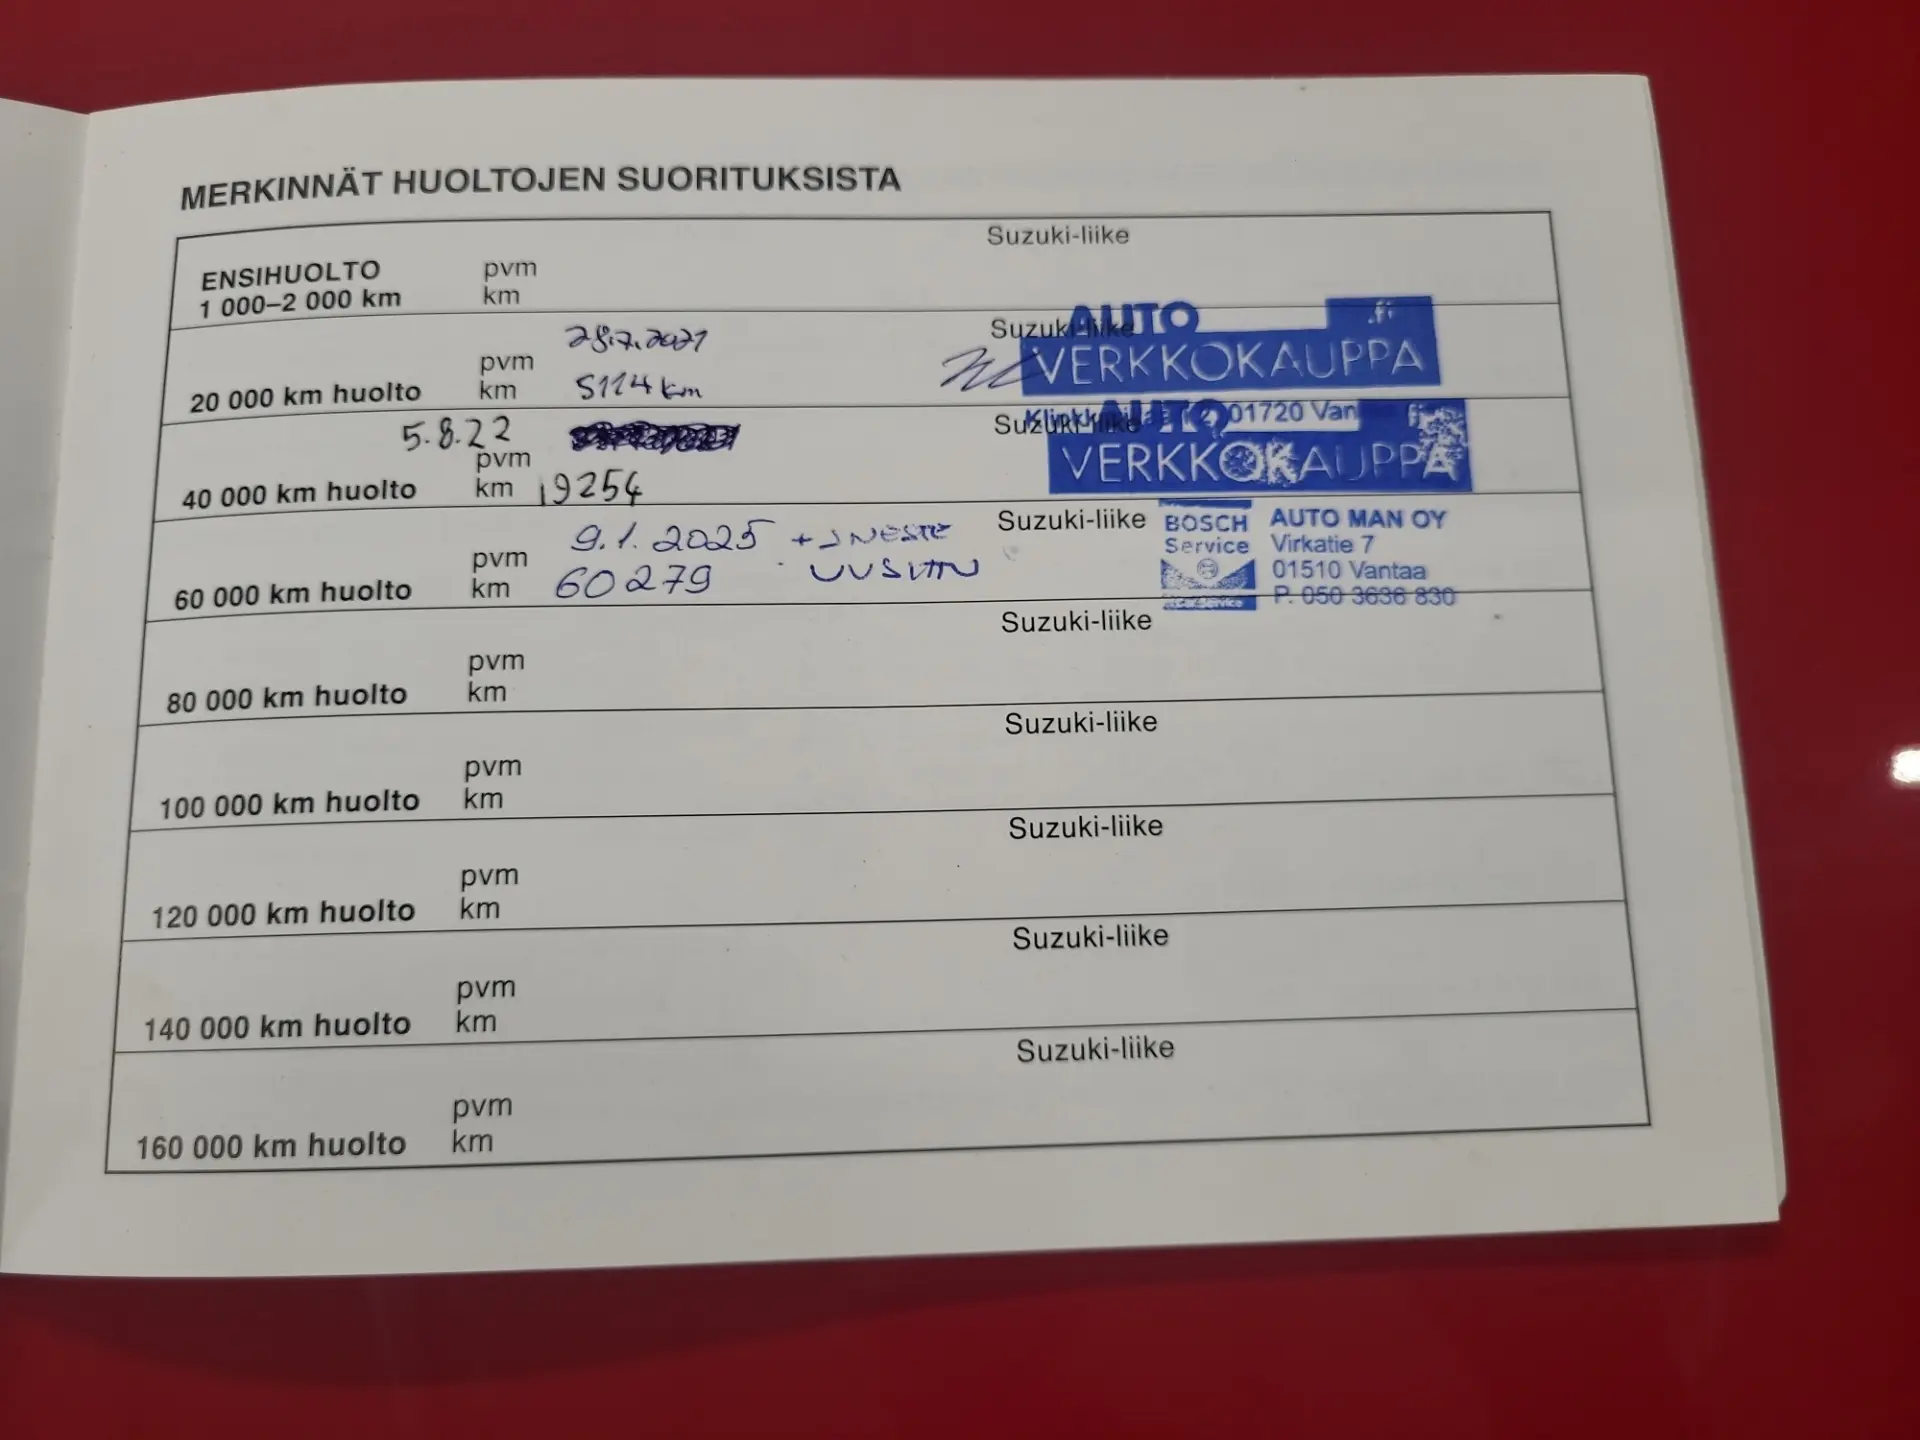 MERKINNÄT HUOLTOJEN SUORITUKSISTA
Suzuki-liike
ENSIHUOLTO pvm
1 000–2 000 km km
28.7.2021 Suzuki-liike AUTO .fi
pvm VERKKOKAUPPA
20 000 km huolto km 5114 km
5.8.22 Suzuki-liike AUTO 01720
pvm VERKKOKAUPPA
40 000 km huolto km 19254
9.1.2025 + J NESTE Suzuki-liike BOSCH AUTO MAN OY
pvm UUSITTIN Service Virkatie 7
60 000 km huolto km 60279 01510 Vantaa
P. 050 3636 830
Suzuki-liike
pvm
80 000 km huolto km
Suzuki-liike
pvm
100 000 km huolto km
Suzuki-liike
pvm
120 000 km huolto km
Suzuki-liike
pvm
140 000 km huolto km
Suzuki-liike
pvm
160 000 km huolto km